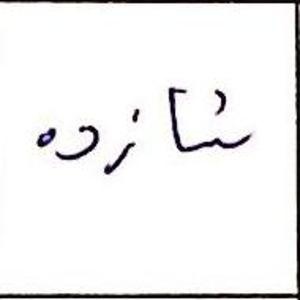 شازده